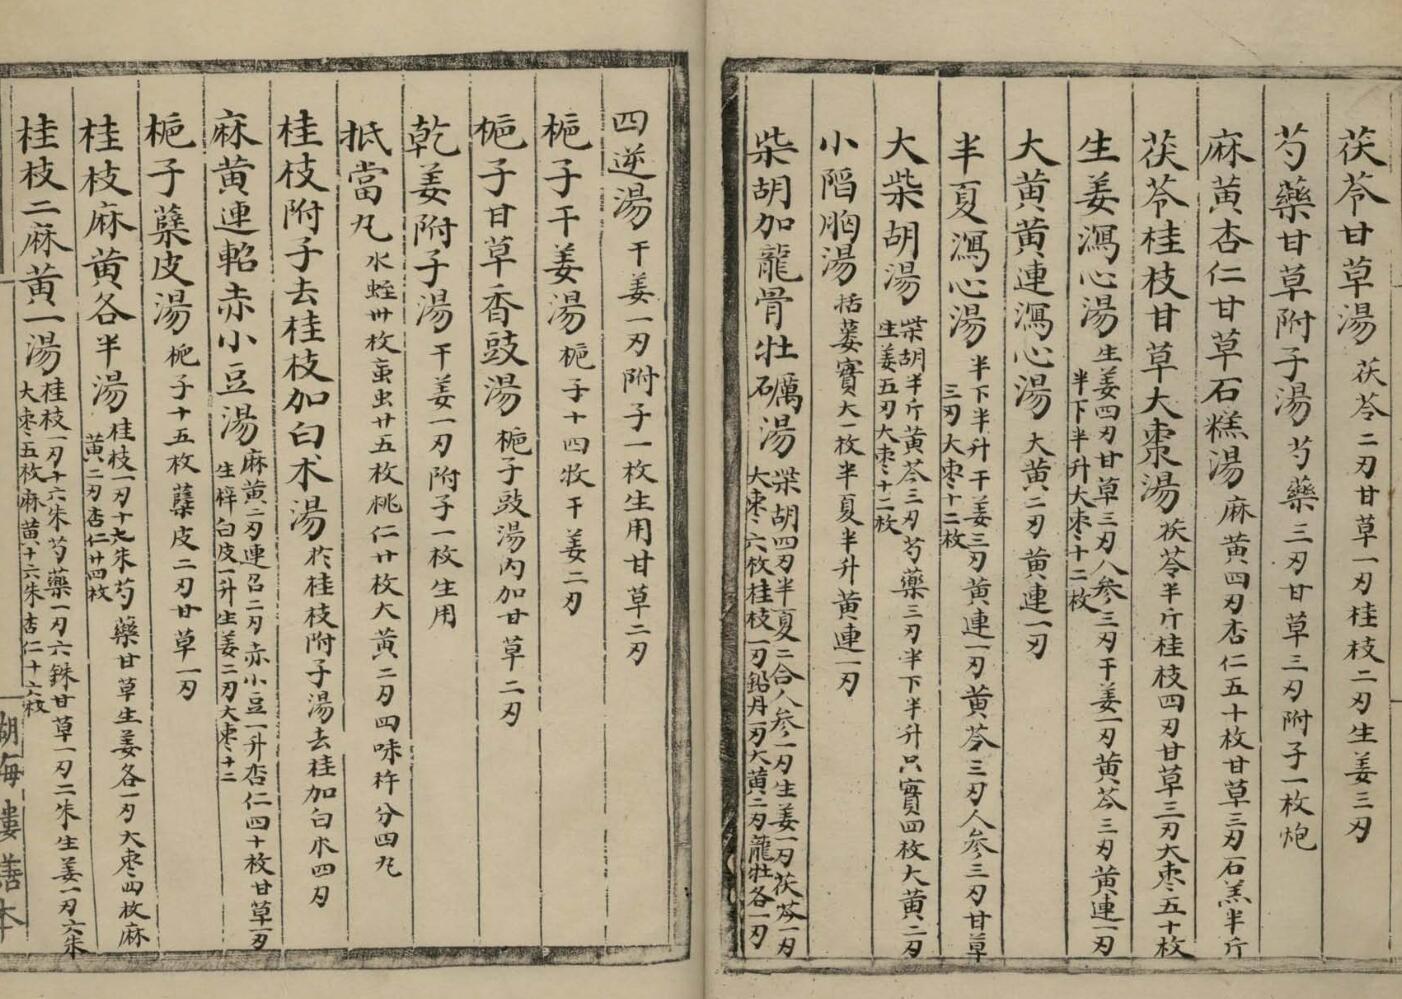 茯苓甘草湯 茯苓二刃甘草一刃桂枝二刃生姜三刃
芍藥甘草附子湯 芍藥三刃甘草三刃附子一枚炮
麻黃杏仁甘草石糕湯 麻黃四刃杏仁五十枚甘草三刃石羔半斤
茯苓桂枝甘草大棗湯 茯苓半斤桂枝四刃甘草三刃大枣五十枚
生姜瀉心湯 生姜四刃甘草三刃人参三刃干姜一刃黃芩三刃黃連一刃
半下半升大枣十二枚
大黃黃連瀉心湯 大黃二刃黃連一刃
半夏瀉心湯 半下半升干姜三刃黃連一刃黃芩三刃人参三刃甘草
三刃大枣十二枚
大柴胡湯 柴胡半斤黃芩三刃芍藥三刃半下半升只實四枚大黃二刃
生姜五刃大枣十二枚
小陷胸湯 括蔞實大一枚半夏半升黃連一刃
柴胡加龍骨牡礪湯 柴胡四刃半夏二合人参一刃生姜一刃茯苓一刃
大枣六枚桂枝一刃鉛丹一刃大黃二刃龍牡各一刃
四逆湯 干姜一刃附子一枚生用甘草二刃
梔子干姜湯 梔子十四牧干姜二刃
梔子甘草香豉湯 梔子豉湯內加甘草二刃
乾姜附子湯 干姜一刃附子一枚生用
抵當丸 水蛭卅枚䖟虫廿五枚桃仁廿枚大黃二刃四味杵分四丸
桂枝附子去桂枝加白术湯 於桂枝附子湯去桂加白水四刃
麻黃連軺赤小豆湯 麻黃二刃連召二刃赤小豆一升杏仁四十枚甘草一刃
生梓白皮一升生姜二刃大枣十二
梔子蘗皮湯 梔子十五枚蘗皮二刃甘草一刃
桂枝麻黃各半湯 桂枝一刃十六朱芍藥甘草生姜各一刃大枣四枚麻
黃二刃杏仁廿四枚
桂枝二麻黃一湯 桂枝一刃十六朱芍藥一刃六銖甘草一刃二朱生姜一刃六朱
大枣五枚麻黃十六朱杏仁十六枚
湖海樓善本